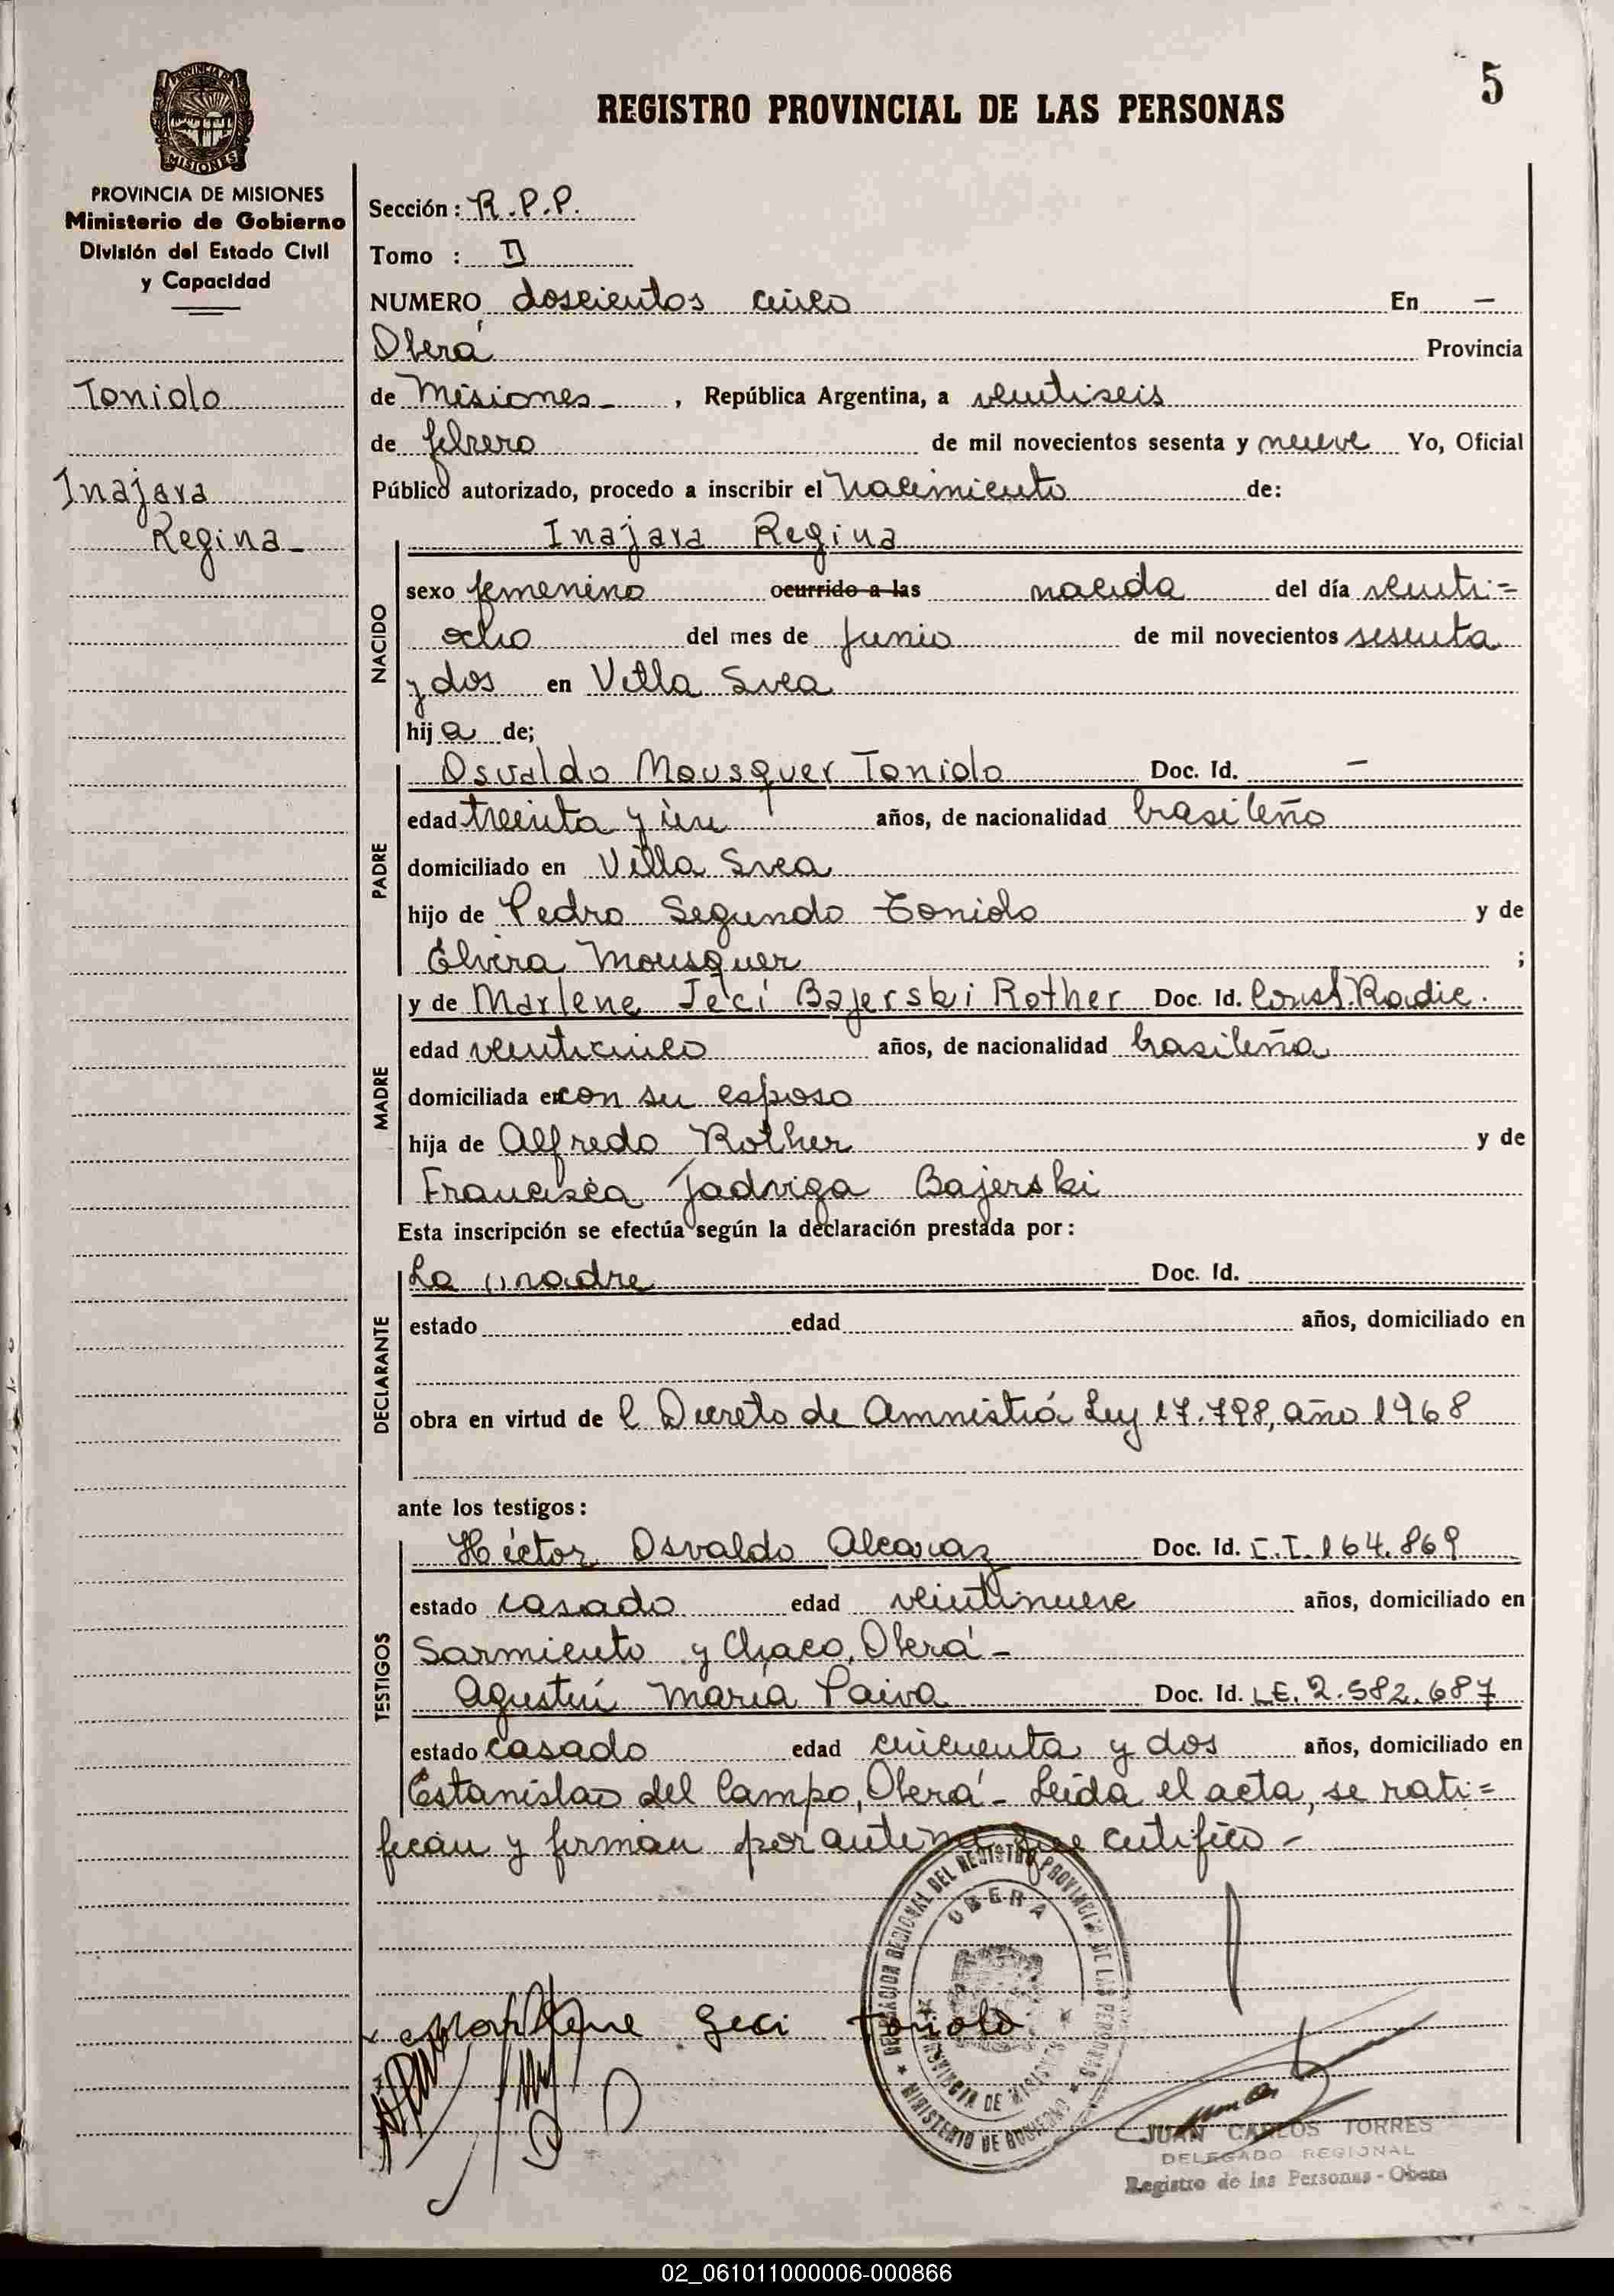 5
REGISTRO PROVINCIAL DE LAS PERSONAS
PROVINCIA DE MISIONES
PROVINCIA DE MISIONES
Ministerio de Gobierno
División del Estado Civil
y Capacidad
Toniolo
Inajara
Regina -
Sección: R.P.P.
Tomo : II
NUMERO doscientos cinco En —
Oberá Provincia
de Misiones - , República Argentina, a veintiseis
de febrero de mil novecientos sesenta y nueve Yo, Oficial
Público autorizado, procedo a inscribir el nacimiento de:
NACIDO
Inajara Regina
sexo femenino ocurrido a las nacida del día veinti=
ocho del mes de junio de mil novecientos sesenta
y dos en Villa Svea
hija de;
PADRE
Osvaldo Mousquer Toniolo Doc. Id. —
edad treinta y un años, de nacionalidad brasileño
domiciliado en Villa Svea
hijo de Pedro Segundo Toniolo y de
Elvira Mousquer ;
MADRE
y de Marlene Jeci Bajerski Rother Doc. Id. Const. Radic.
edad veinticinco años, de nacionalidad brasileña
domiciliada en con su esposo
hija de Alfredo Rother y de
Francisca Jadviga Bajerski
Esta inscripción se efectúa según la declaración prestada por:
DECLARANTE
La madre Doc. Id.
estado edad años, domiciliado en
obra en virtud de l Decreto de Amnistía Ley 17.798, año 1968
ante los testigos:
TESTIGOS
Héctor Osvaldo Alcaraz Doc. Id. C.I. 164.869
estado casado edad veintinueve años, domiciliado en
Sarmiento y Chaco, Oberá -
Agustín María Paiva Doc. Id. LE. 2.582.687
estado casado edad cincuenta y dos años, domiciliado en
Estanislao del Campo, Oberá - Leída el acta, se rati=
fican y firman por ante mí que certifico -
DELEGACION REGIONAL DEL REGISTRO PROVINCIAL DE LAS PERSONAS
OBERA
PROVINCIA DE MISIONES
MINISTERIO DE GOBIERNO
x Marlene Geci Toniolo
JUAN CARLOS TORRES
DELEGADO REGIONAL
Registro de las Personas - Obera
02_061011000006-000866